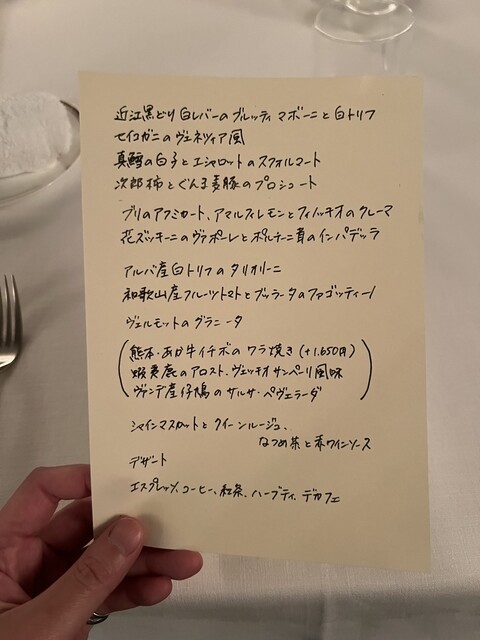 近江黒どり白レバーのブルッティ マボーニと白トリフ
セイコガニのヴェネツィア風
真鱈の白子とエシャロットのスフォルマート
次郎柿とぐんま麦豚のプロシュート
ブリのアフミカート、アマルフィレモンとフィノッキオのクレーマ
花ズッキーニのヴァポーレとポルチーニ茸のインパデッラ
アルバ産白トリフのタリオリーニ
和歌山産フルーツトマトとブッラータのファゴッティーノ
ヴェルモットのグラニータ
(熊本・あか牛イチボのワラ焼き (+1.650円)
蝦夷鹿のアロスト、ヴェッキオサンペーリ風味
ヴァンデ産仔鳩のサルサ・ペヴェラーダ)
シャインマスカットとクイーンルージュ、
なつめ茶と赤ワインソース
デザート
エスプレッソ、コーヒー、紅茶、ハーブティ、デカフェ